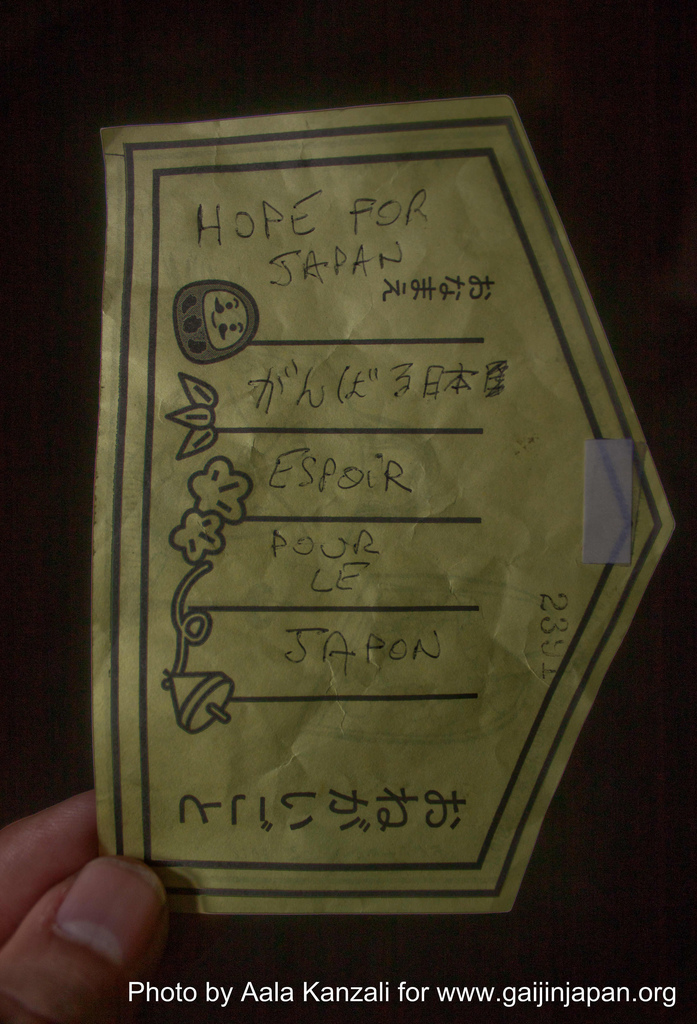 HOPE FOR
JAPAN
おなまえ
がんばる日本
ESPOIR
POUR
LE
JAPON
おねがいごと
Photo by Aala Kanzali for www.gaijinjapan.org